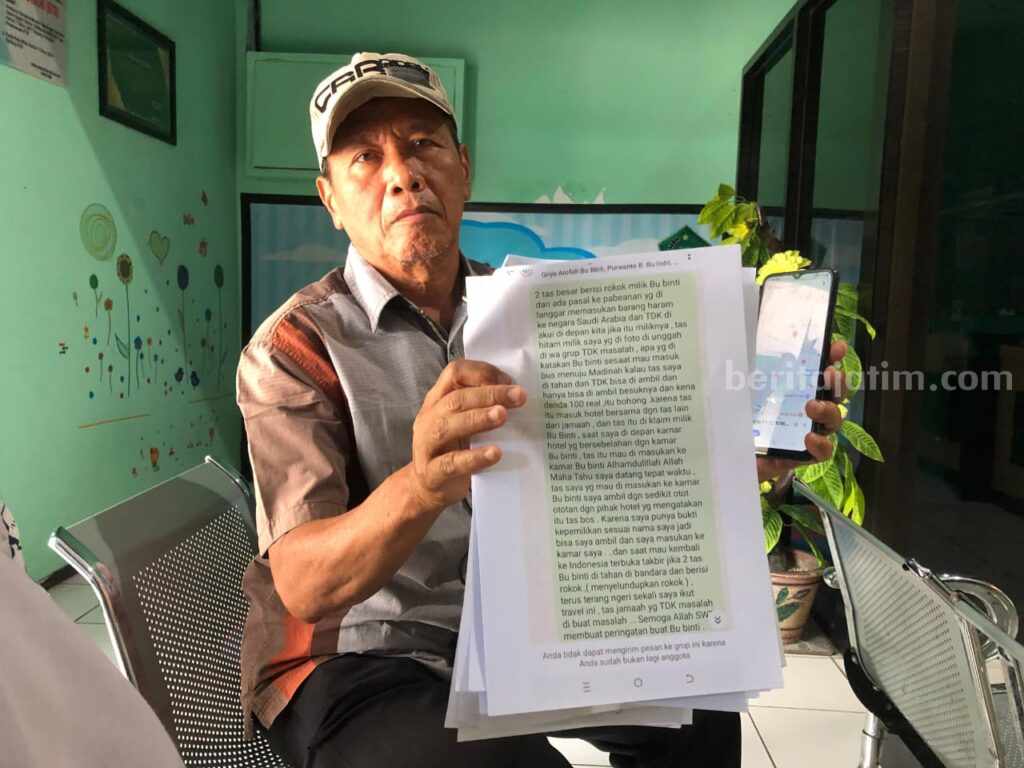 Griya Arofah Bu Binti, Purwanto B, Bu Indri, ...
2 tas besar berisi rokok milik Bu binti
dan ada pasal ke pabeanan yg di
langgar memasukan barang haram
ke negara Saudi Arabia dan TDK di
akui di depan kita jika itu miliknya , tas
hitam milik saya yg di foto di unggah
di wa grup TDK masalah , apa yg di
katakan Bu binti sesaat mau masuk
bus menuju Madinah kalau tas saya
di tahan dan TDK bisa di ambil dan
hanya bisa di ambil besuknya dan kena
denda 100 real ,itu bohong .karena tas
itu masuk hotel bersama dgn tas lain
dari jamaah , dan tas itu di klaim milik
Bu Binti , saat saya di depan kamar
hotel yg bersebelahan dgn kamar
Bu binti , tas itu mau di masukan ke
kamar Bu binti Alhamdulillah Allah
Maha Tahu saya datang tepat waktu ,
tas saya yg mau di masukan ke kamar
Bu binti saya ambil dgn sedikit otot
ototan dgn pihak hotel yg mengatakan
itu tas bos . Karena saya punya bukti
kepemilikan sesuai nama saya jadi
bisa saya ambil dan saya masukan ke
kamar saya . ..dan saat mau kembali
ke Indonesia terbuka takbir jika 2 tas
Bu binti di tahan di bandara dan berisi
rokok.,( menyelundupkan rokok ) .
terus terang ngeri sekali saya ikut
travel ini , tas jamaah yg TDK masalah
di buat masalah ... Semoga Allah SWT
membuat peringatan buat Bu binti .
Anda tidak dapat mengirim pesan ke grup ini karena
Anda sudah bukan lagi anggota
beritajatim.com